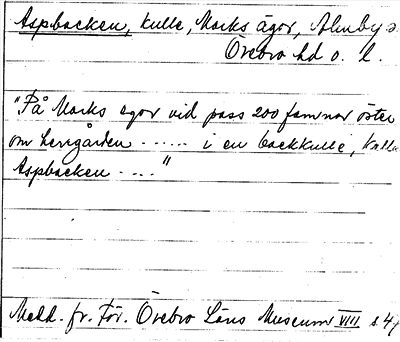 Aspbacken, kulle, Marks ägor, Almby s
Örebro hd o. l.
"På Marks egor vid pass 200 famnar öster
om herrgården ...... i en backkulle, kallad
Aspbacken ...."
Medd. fr. För. Örebro Läns Museum VIII s. 4